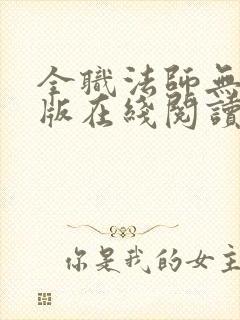 全職法師無
版在綫閱讀
你是我的女主